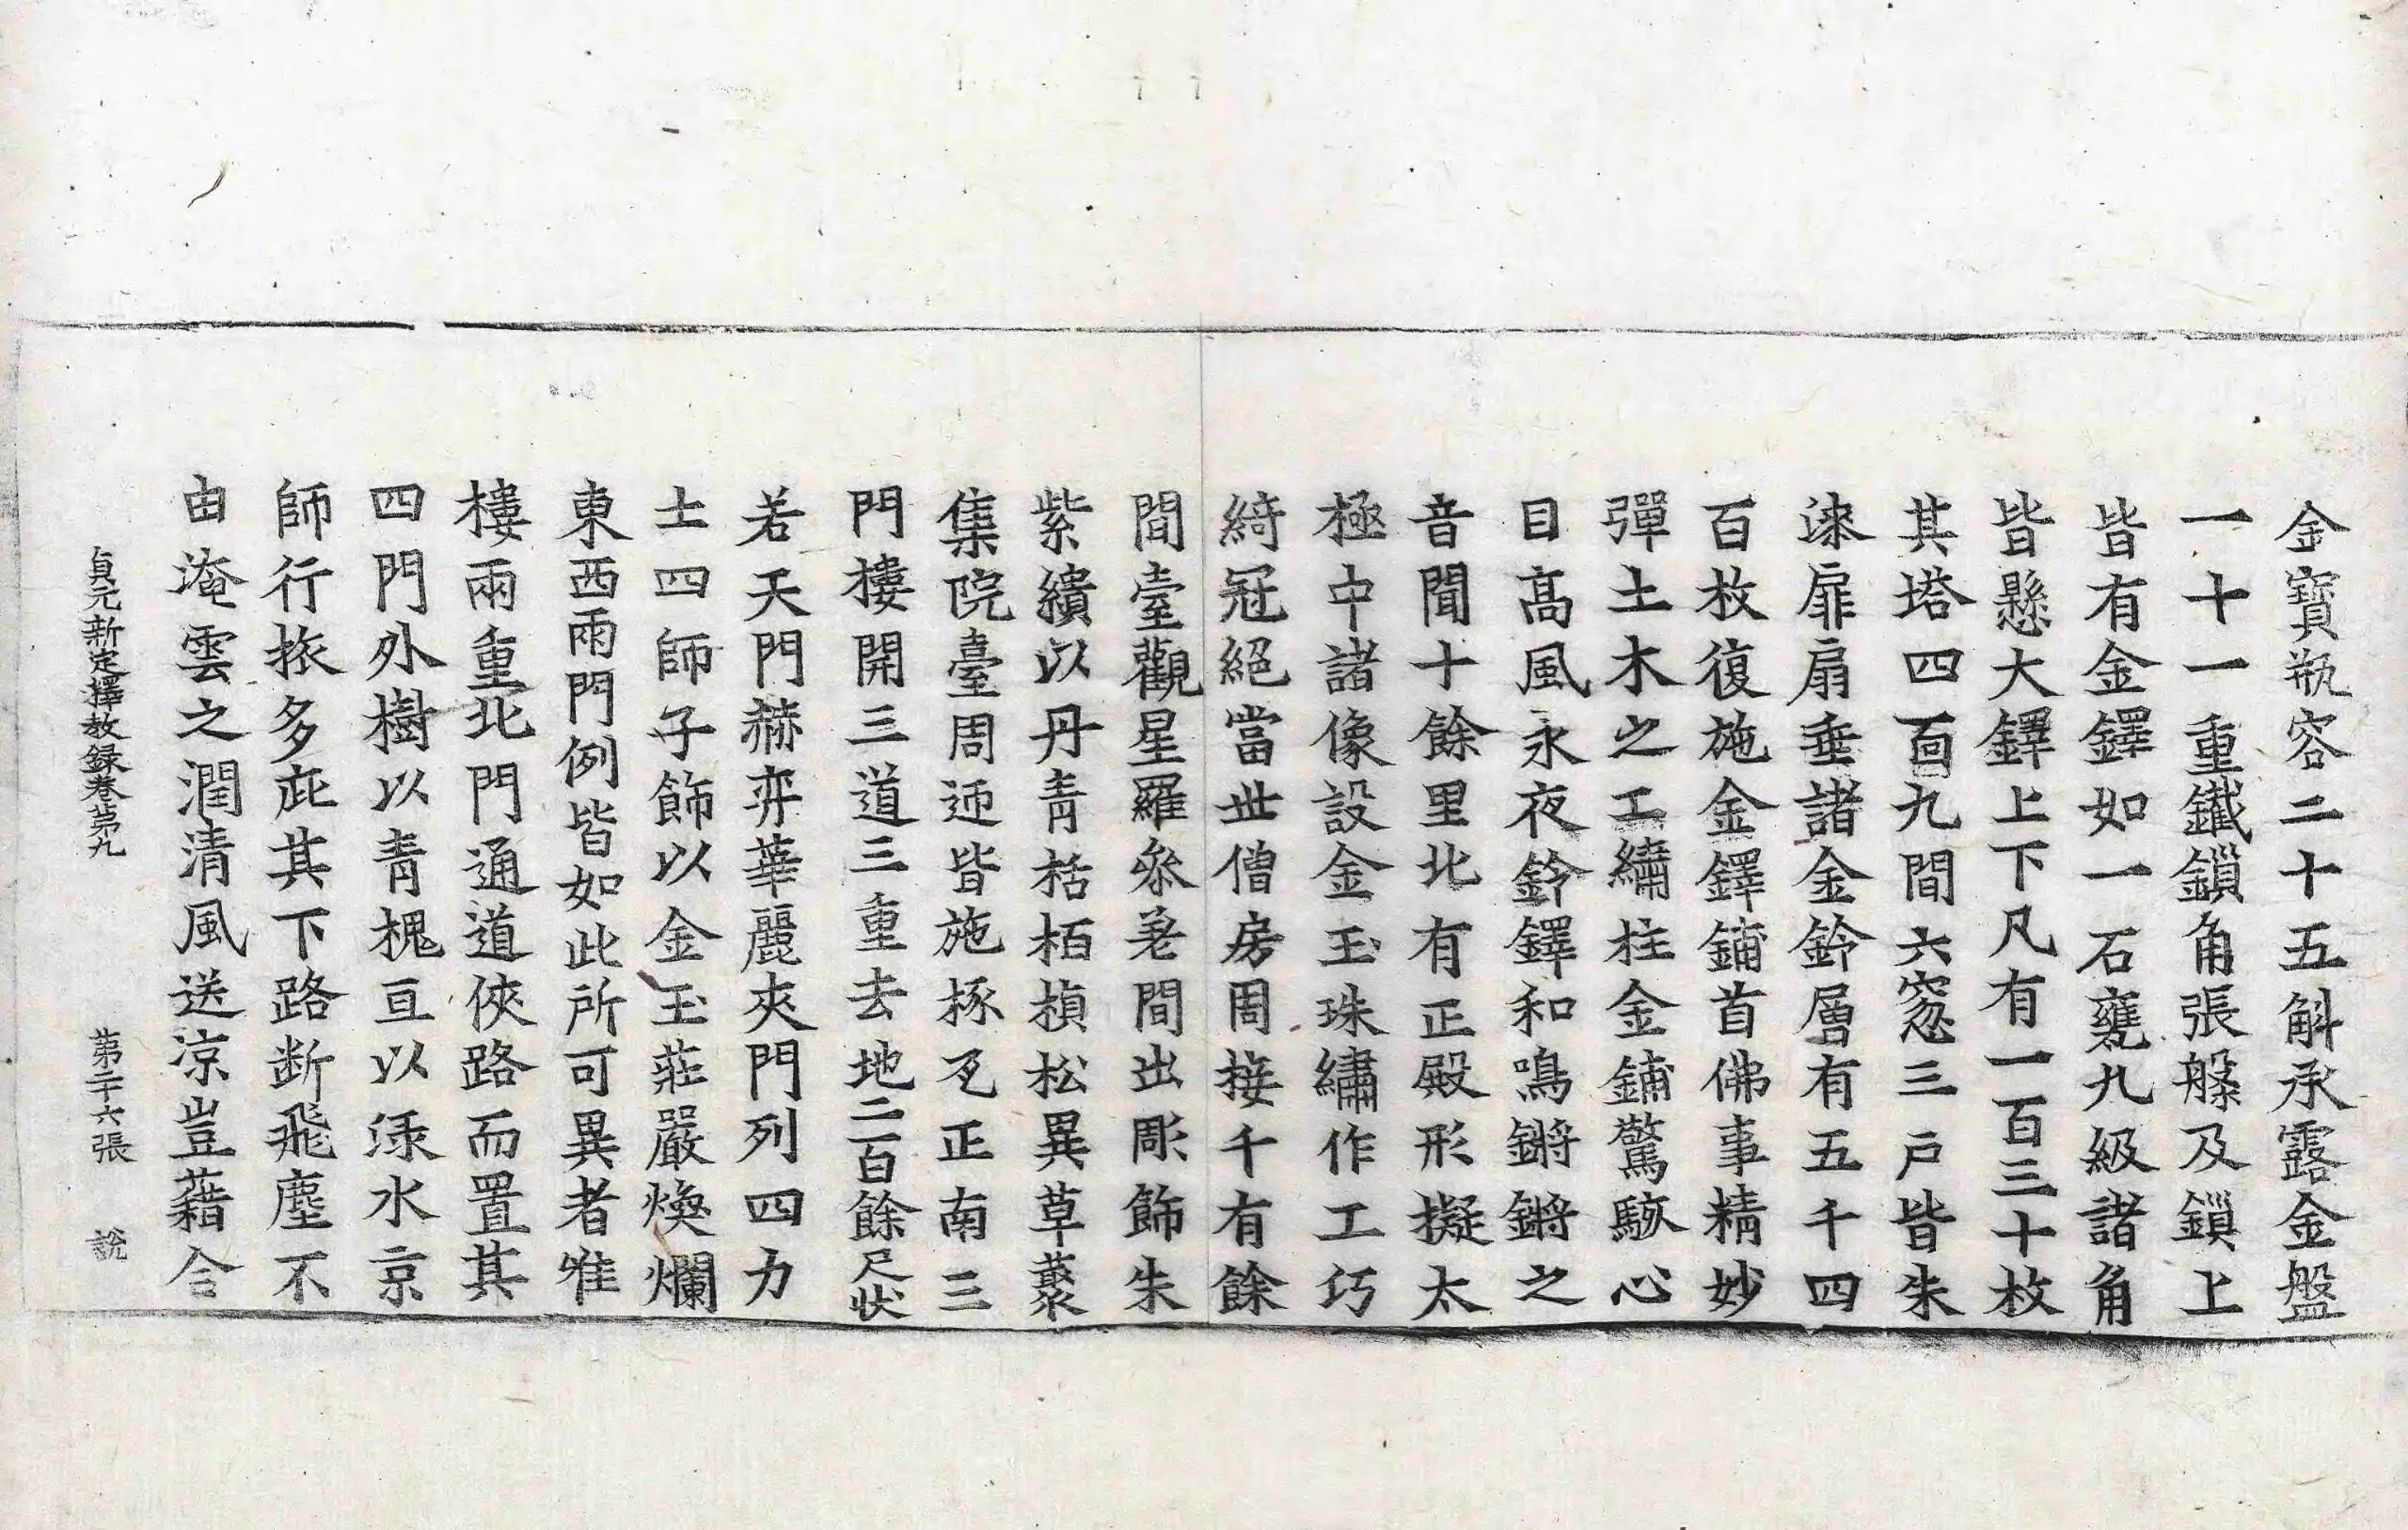 金寶瓶容二十五斛承露金盤
一十一重鐵鎖角張槃及鎖上
皆有金鐸如一石甕九級諸角
皆懸大鐸上下凡有一百三十枚
其塔四面九間六窓三戶皆朱
漆扉扇垂諸金鈴層有五千四
百枚復施金鐸鋪首佛事精妙
彈土木之工繡柱金鋪驚駭心
目高風永夜鈴鐸和鳴鏘鏘之
音聞十餘里北有正殿形擬太
極中諸像設金玉珠繡作工巧
綺冠絕當世僧房周接千有餘
間臺觀星羅叅差間出彫飾朱
紫繢以丹青栝栢楨松異草藂
集院臺周迊皆施椽瓦正南三
門樓開三道三重去地二百餘尺狀
若天門赫弈華麗夾門列四力
士四師子飾以金玉莊嚴煥爛
東西兩門例皆如此所可異者唯
樓兩重北門通道俠路而置其
四門外樹以青槐亘以淥水京
師行旅多庇其下路断飛塵不
由淹雲之潤清風送涼豈藉合
貞元新定釋教錄卷苐九 苐二十六張 說